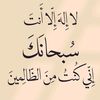 لا إله إلا أنت
سُبحانَكَ
إِنّي كُنتُ مِنَ الظّالِمينَ